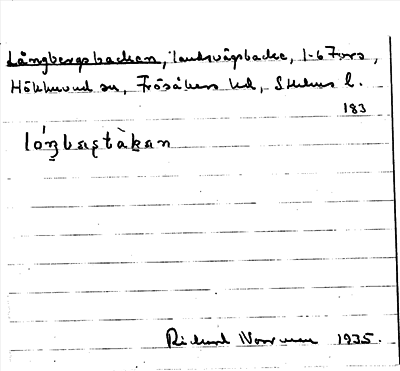 Långbergsbacken, landsvägsbacke, 1-6 Fors,
Hökhuvud sn, Frösåkers hd, Sthlms l.
183
lóŋbæștàkan
Richard Norrman 1935.